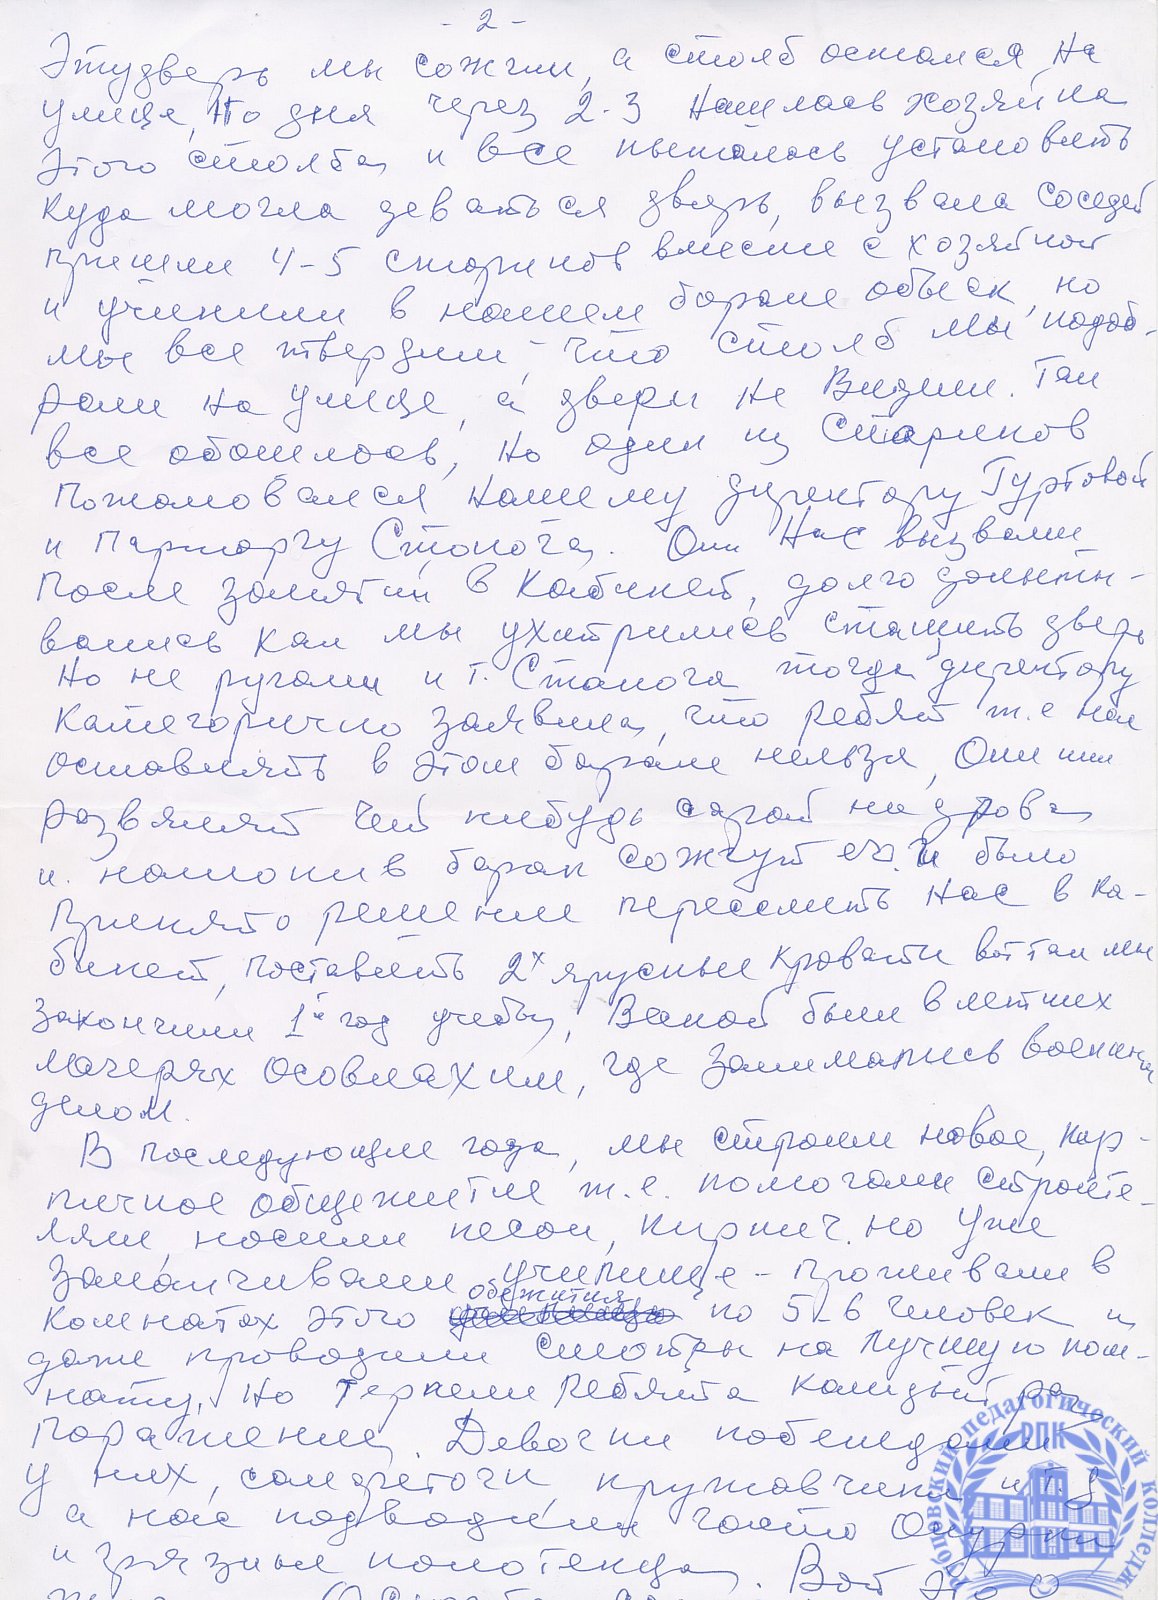 - 2 -
Эту дверь мы сожгли, а столб остался на
улице, по дня через 2-3 нашлась хозяйка
этого столба и все пыталась установить
куда могла деваться дверь, вызвала соседей
пришли 4-5 стариков вместе с хозяйкой
и учинили в нашем бараке обыск, но
мы все твердили - что столб мы подоб-
рали на улице, а двери не видили. Так
все обошлось, но один из стариков
пожаловался нашему директору Гуртовой
и парторгу Стонога. Они нас вызвали
после занятий в кабинет, долго допыты-
вались как мы ухитрились стащить дверь
Но не ругали и т. Станога тогда директору
категорично заявила, что ребят т.е нас
оставлять в этом бараке нельзя, Они или
развалят чей нибудь сарай на дрова
и наконив барак сожгут его. И было
принято решение переселить нас в ка-
бинет, поставить 2х ярусные кровати вот так мы
закончили 1й год учебы, Весной были в летних
лагерях Осовиахим, где занимались военным
делом.
В последующие года, мы строили новое, кир-
пичное общежитие т.е. помогали строите-
лям, носили песок, кирпич. но уже
заканчивали училище - проживали в
комнатах этого общежития по 5-6 человек и
даже проводили смотры на лучшую ком-
нату, но терпели ребята каждый раз
поражение. Девочки побеждали
у них, салфеточки кружовчики и т.д
а нас подводили часто окурки
и грязные полотенца. Вот это о
РПК
Рубцовский педагогический колледж